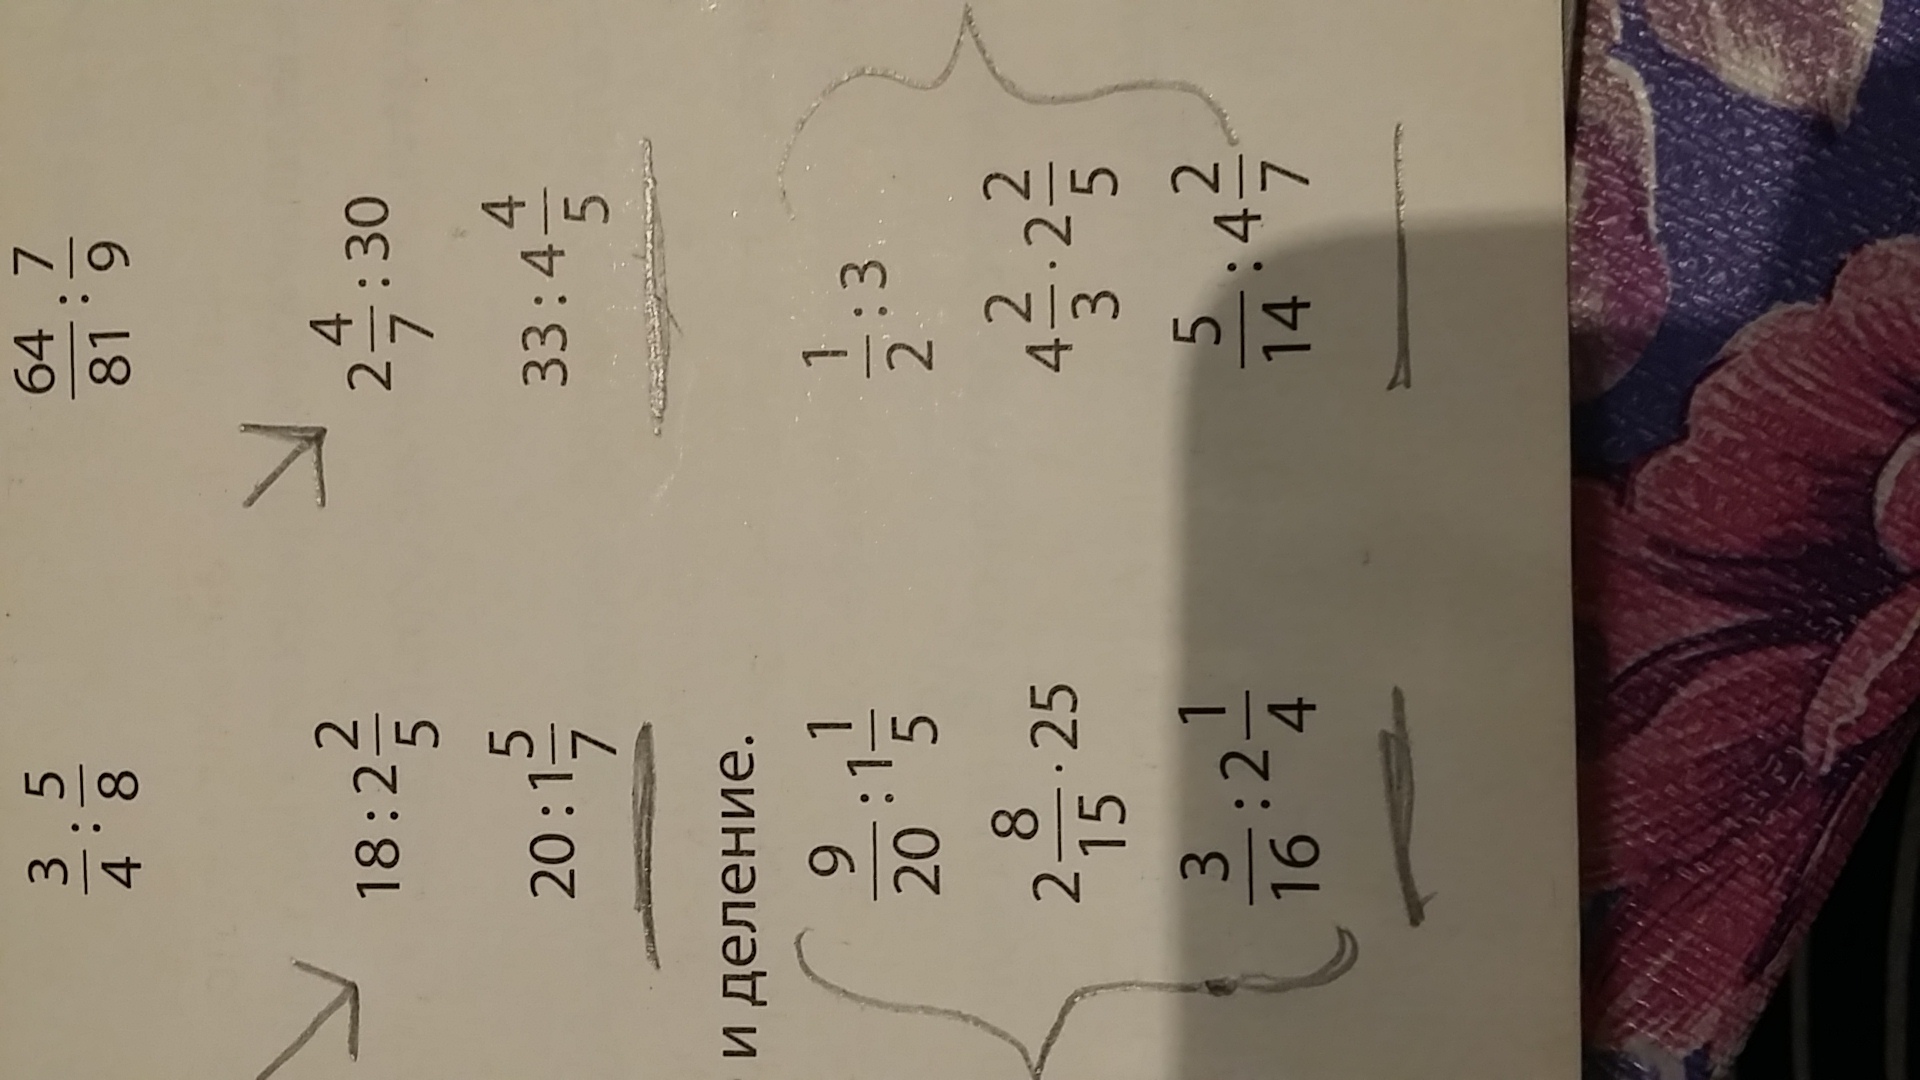 3/4 : 5/8    64/81 : 7/9
18 : 2 2/5    2 4/7 : 30
20 : 1 5/7    33 : 4 4/5
и деление.
9/20 : 1 1/5    1/2 : 3
2 8/15 · 25    4 2/3 · 2 2/5
3/16 : 2 1/4    5/14 : 4 2/7